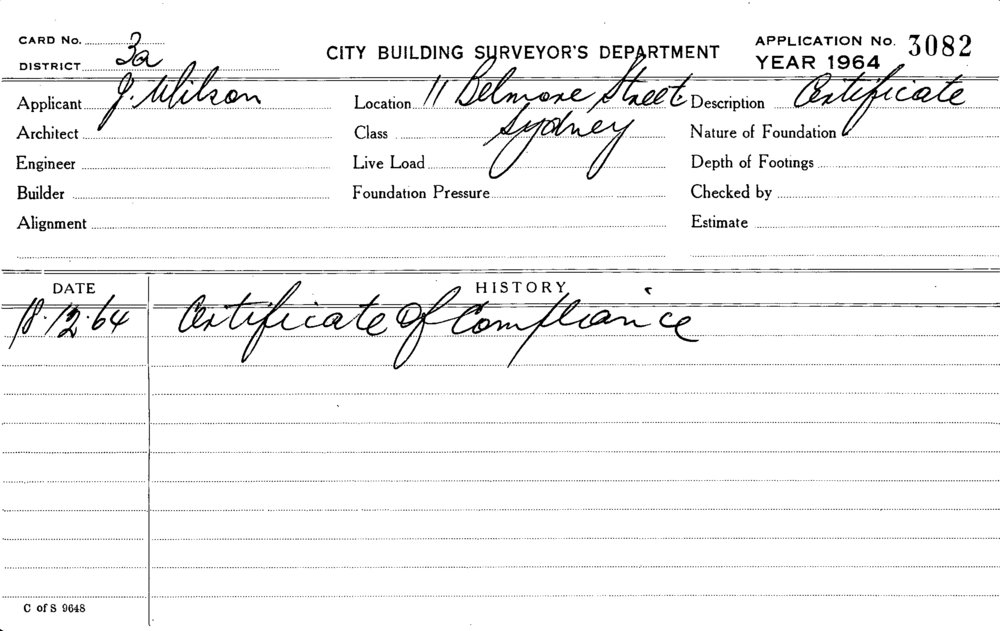 CARD No. 3a CITY BUILDING SURVEYOR'S DEPARTMENT APPLICATION No. 3082
DISTRICT YEAR 1964
Applicant J. Wilson Location 11 Belmore Street Description Certificate
Architect Class Sydney Nature of Foundation
Engineer Live Load Depth of Footings
Builder Foundation Pressure Checked by
Alignment Estimate
DATE HISTORY
18.12.64 Certificate of Compliance
C of S 9648